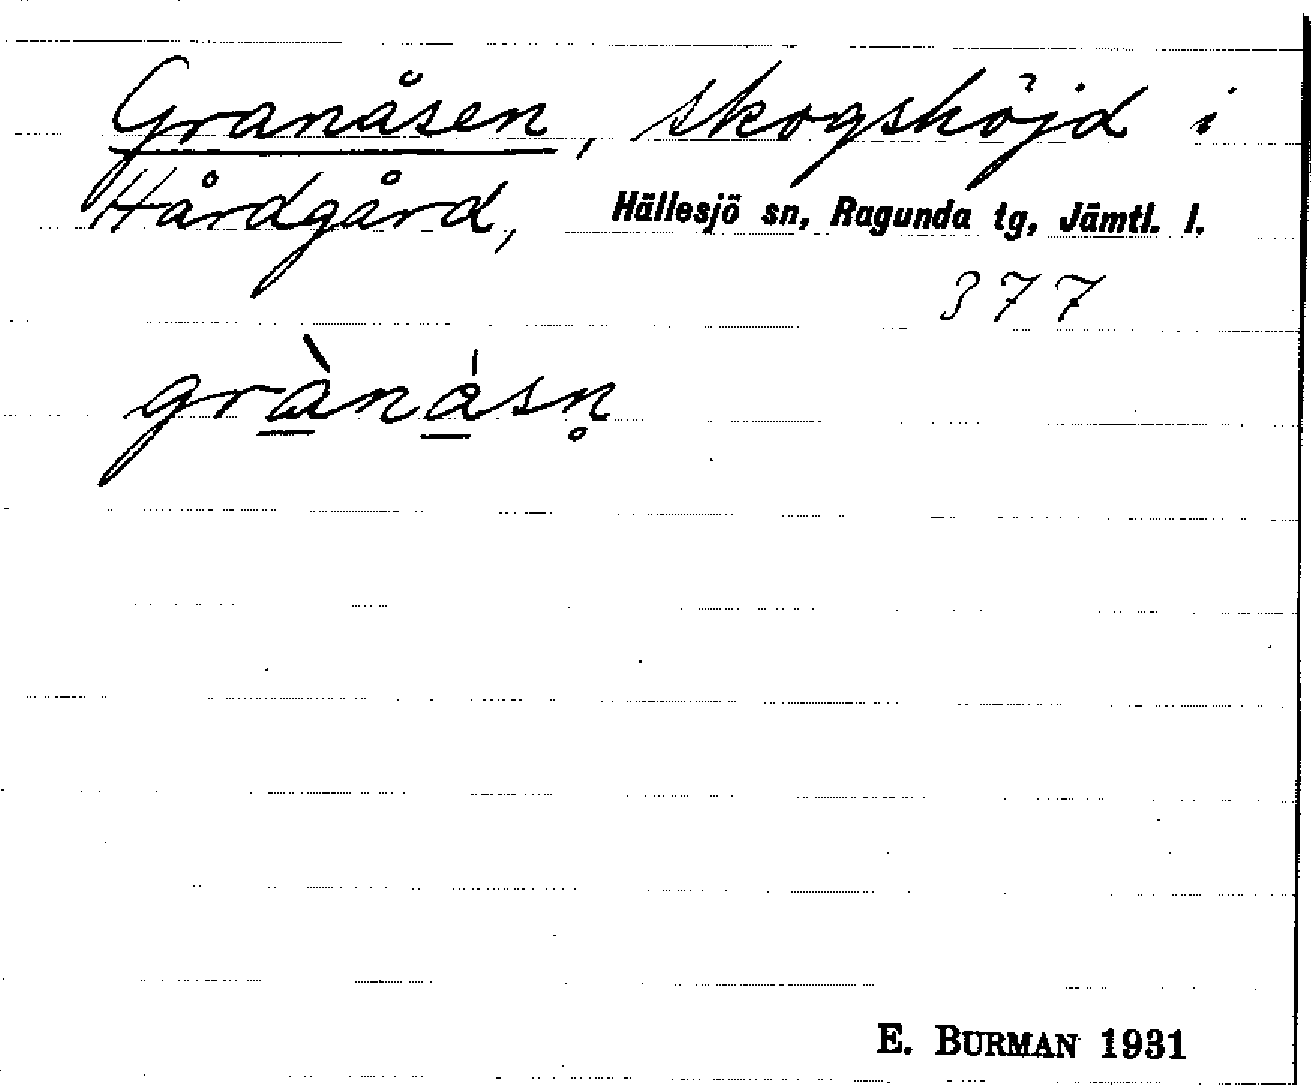 Granåsen, skogshöjd i
Hårdgård, Hällesjö sn, Ragunda tg, Jämtl. l.
377
grà̲na̲̍sn̥
E. BURMAN 1931